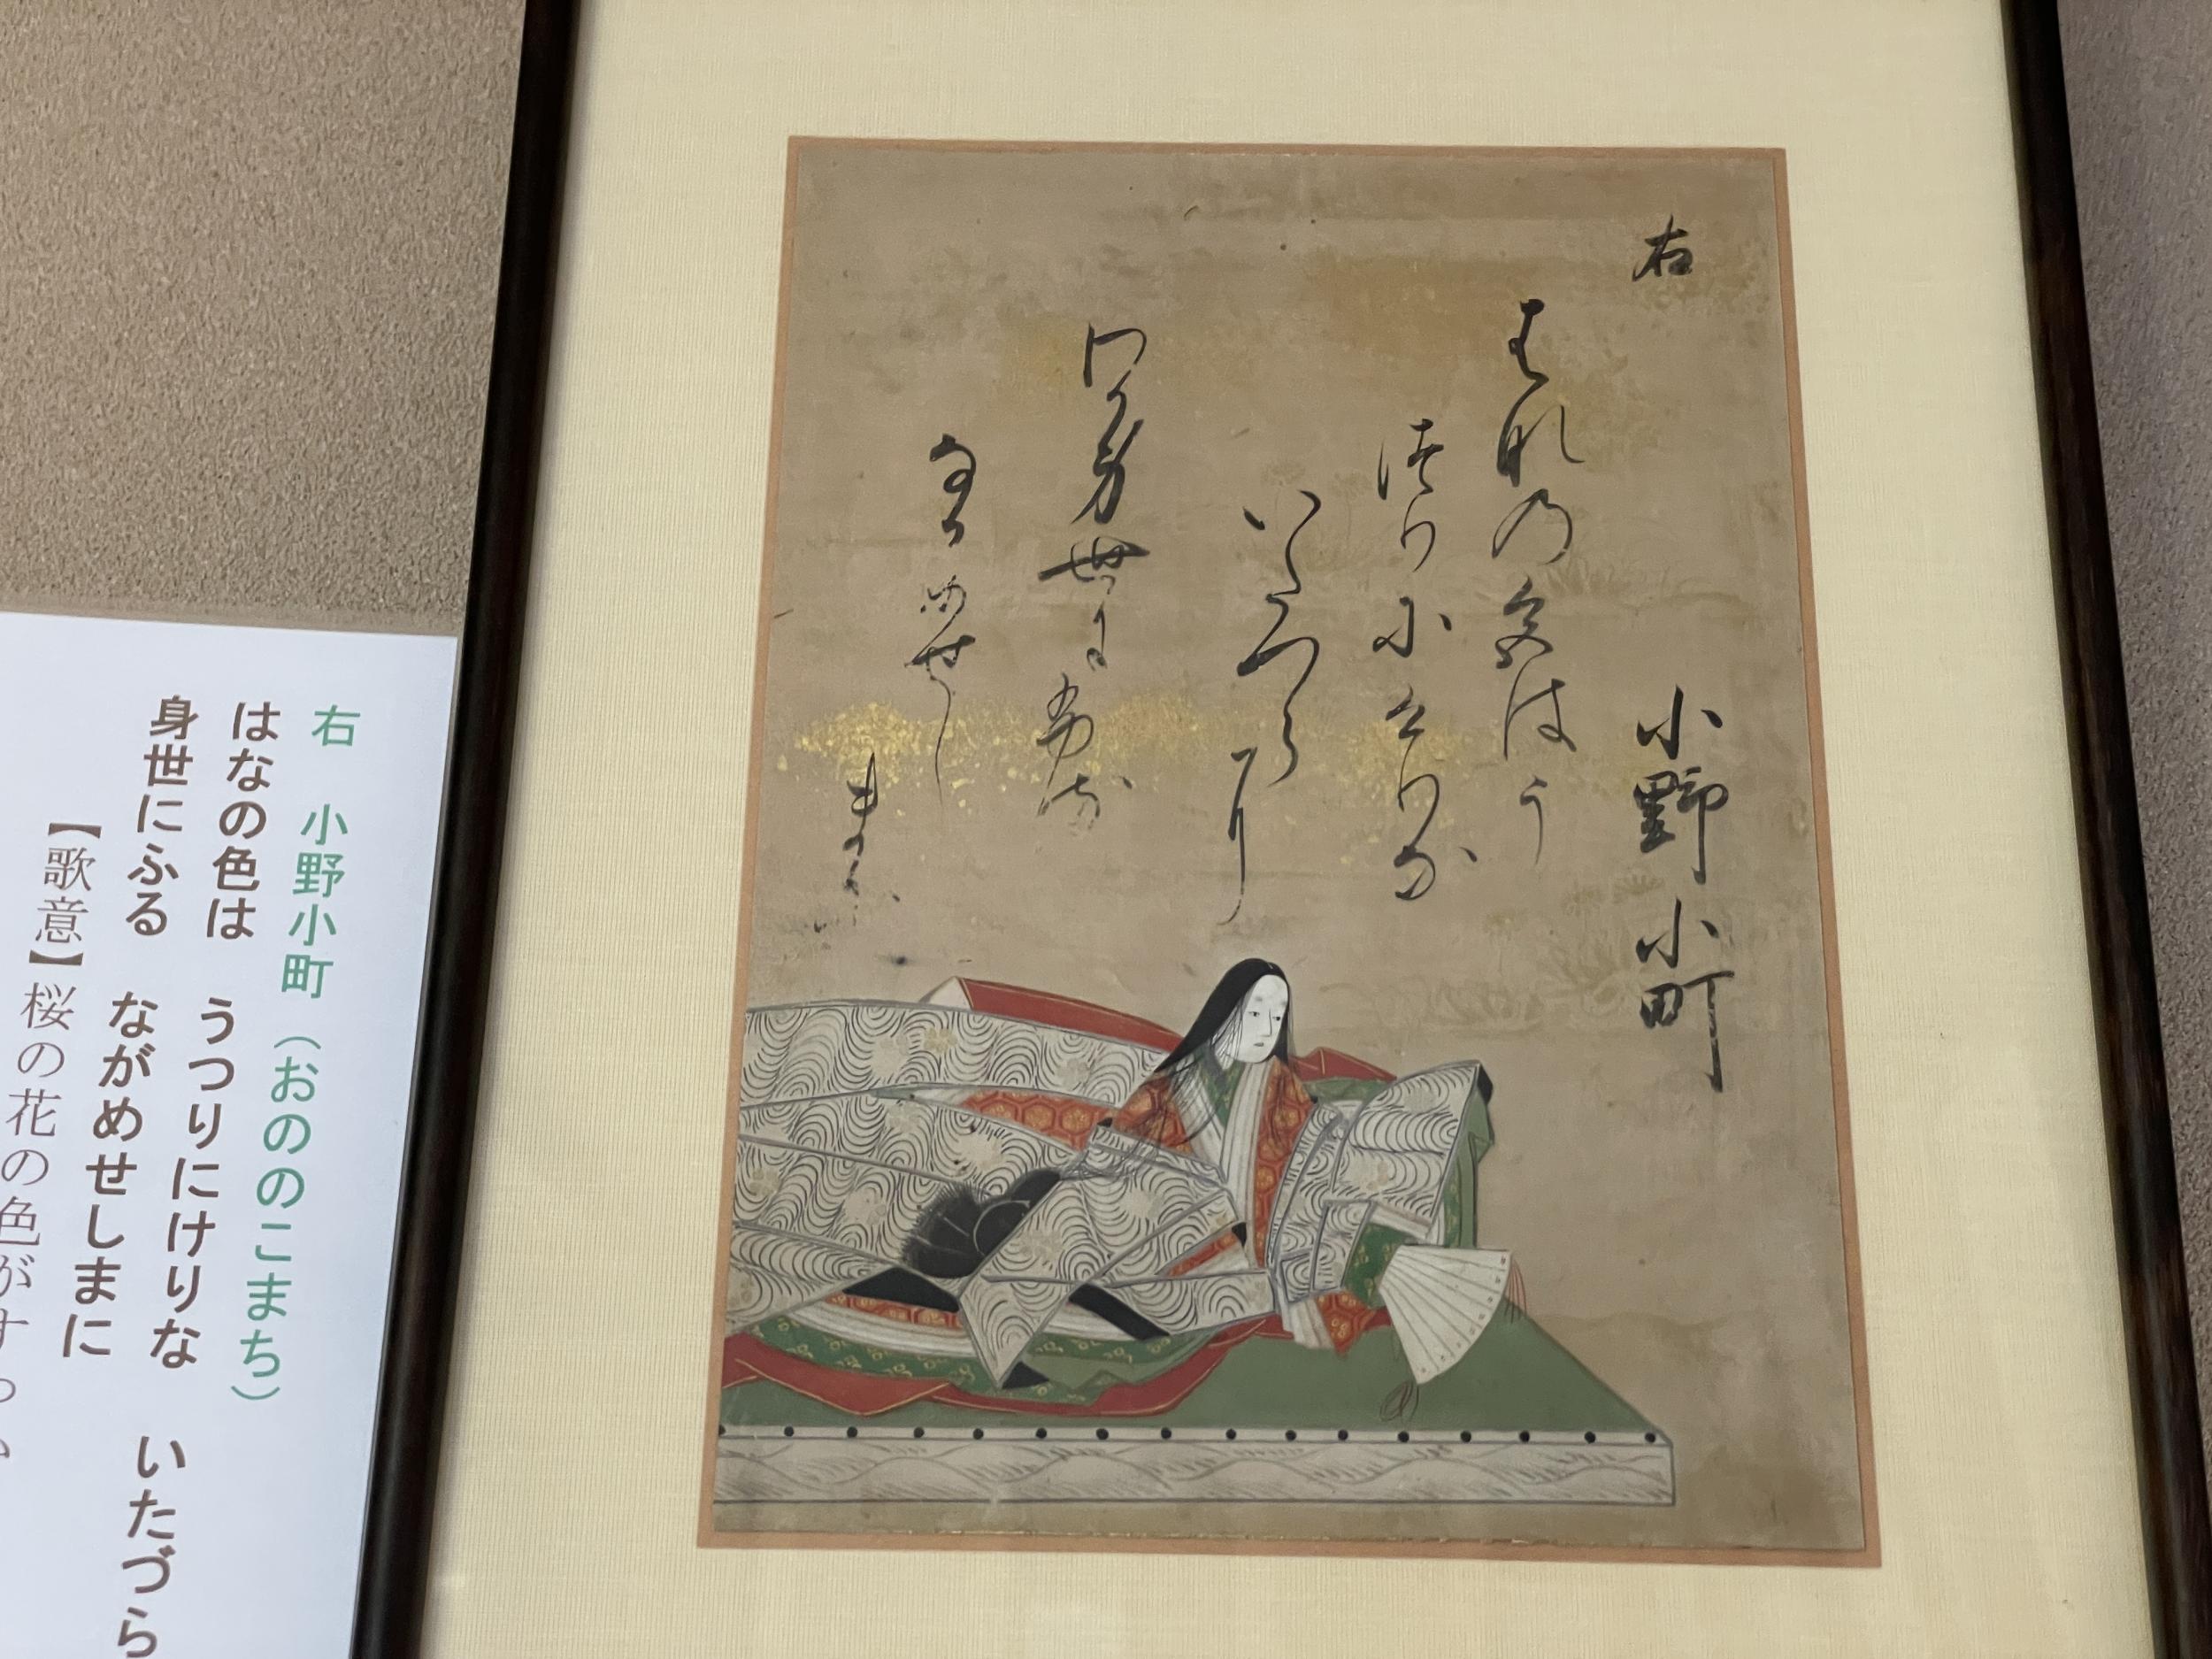 右 小野小町
はなの色はう
つりにけりな
いたつらに
わか身世にふる
なかめせし
まに
右　小野小町（おののこまち）
はなの色は　うつりにけりな　いたづら
身世にふる　ながめせしまに
【歌意】桜の花の色がす